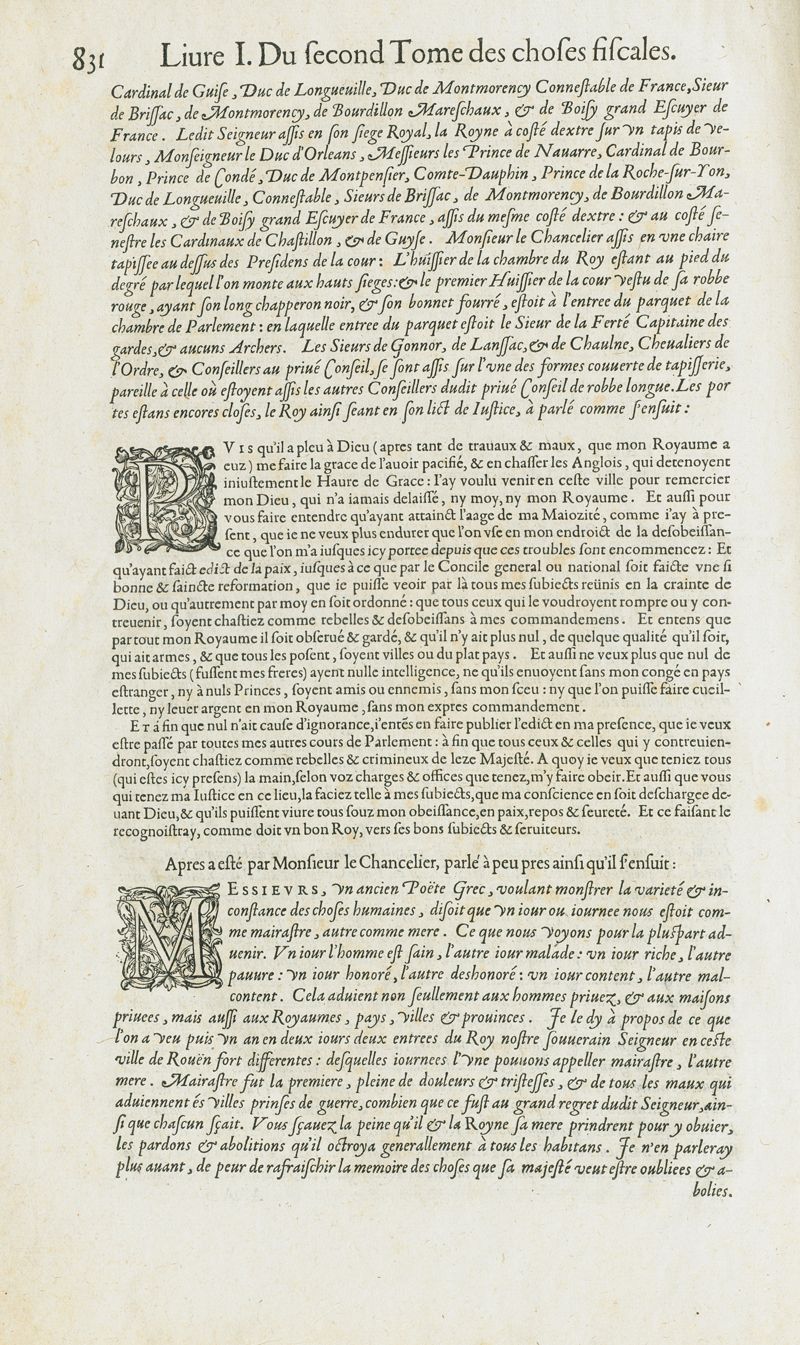 831 Liure I. Du ſecond Tome des choſes fiſcales.
Cardinal de Guiſe, Duc de Longueuille, Duc de Montmorency Conneſtable de France, Sieur
de Briſſac, de Montmorency, de Bourdillon Mareſchaux, & de Boiſy grand Eſcuyer de
France. Ledit Seigneur aſſis en ſon ſiege Royal, la Royne à coſté dextre ſur vn tapis de ve-
lours, Monſeigneur le Duc d'Orleans, Meſſieurs les Prince de Nauarre, Cardinal de Bour-
bon, Prince de Condé, Duc de Montpenſier, Comte-Dauphin, Prince de la Roche-ſur-Yon,
Duc de Longueuille, Conneſtable, Sieurs de Briſſac, de Montmorency, de Bourdillon Ma-
reſchaux, & de Boiſy grand Eſcuyer de France, aſſis du meſme coſté dextre: & au coſté ſe-
neſtre les Cardinaux de Chaſtillon, & de Guyſe. Monſieur le Chancelier aſſis en vne chaire
tapiſſee au deſſus des Preſidens de la cour: L'huiſſier de la chambre du Roy eſtant au pied du
degré par lequel l'on monte aux hauts ſieges: & le premier Huiſſier de la cour veſtu de ſa robbe
rouge, ayant ſon long chapperon noir, & ſon bonnet fourré, eſtoit à l'entree du parquet de la
chambre de Parlement: en laquelle entree du parquet eſtoit le Sieur de la Ferté Capitaine des
gardes, & aucuns Archers. Les Sieurs de Gonnor, de Lanſſac, & de Chaulne, Cheualiers de
l'Ordre, & Conſeillers au priué Conſeil, ſe ſont aſſis ſur l'vne des formes couuerte de tapiſſerie,
pareille à celle où eſtoyent aſſis les autres Conſeillers dudit priué Conſeil de robbe longue. Les por
tes eſtans encores cloſes, le Roy ainſi ſeant en ſon lict de Iuſtice, à parlé comme ſ'enſuit:
PVIS qu'il a pleu à Dieu (apres tant de trauaux & maux, que mon Royaume a
euz) me faire la grace de l'auoir pacifié, & en chaſſer les Anglois, qui detenoyent
iniuſtement le Haure de Grace: I'ay voulu venir en ceſte ville pour remercier
mon Dieu, qui n'a iamais delaiſſé, ny moy, ny mon Royaume. Et auſſi pour
vous faire entendre qu'ayant attainct l'aage de ma Maiozité, comme i'ay à pre-
ſent, que ie ne veux plus endurer que l'on vſe en mon endroict de la deſobeiſſan-
ce que l'on m'a iuſques icy portee depuis que ces troubles ſont encommencez: Et
qu'ayant faict edict de la paix, iuſques à ce que par le Concile general ou national ſoit faicte vne ſi
bonne & ſaincte reformation, que ie puiſſe veoir par là tous mes ſubiects reünis en la crainte de
Dieu, ou qu'autrement par moy en ſoit ordonné: que tous ceux qui le voudroyent rompre ou y con-
treuenir, ſoyent chaſtiez comme rebelles & deſobeiſſans à mes commandemens. Et entens que
par tout mon Royaume il ſoit obſerué & gardé, & qu'il n'y ait plus nul, de quelque qualité qu'il ſoit,
qui ait armes, & que tous les poſent, ſoyent villes ou du plat pays. Et auſſi ne veux plus que nul de
mes ſubiects (fuſſent mes freres) ayent nulle intelligence, ne qu'ils enuoyent ſans mon congé en pays
eſtranger, ny à nuls Princes, ſoyent amis ou ennemis, ſans mon ſceu: ny que l'on puiſſe faire cueil-
lette, ny leuer argent en mon Royaume, ſans mon expres commandement.
ET à fin que nul n'ait cauſe d'ignorance, i'entés en faire publier l'edict en ma preſence, que ie veux
eſtre paſſé par toutes mes autres cours de Parlement: à fin que tous ceux & celles qui y contreuien-
dront, ſoyent chaſtiez comme rebelles & crimineux de leze Majeſté. A quoy ie veux que teniez tous
(qui eſtes icy preſens) la main, ſelon voz charges & offices que tenez, m'y faire obeir. Et auſſi que vous
qui tenez ma Iuſtice en ce lieu, la faciez telle à mes ſubiects, que ma conſcience en ſoit deſchargee de-
uant Dieu, & qu'ils puiſſent viure tous ſouz mon obeiſſance, en paix, repos & ſeureté. Et ce faiſant le
recognoiſtray, comme doit vn bon Roy, vers ſes bons ſubiects & ſeruiteurs.
Apres a eſté par Monſieur le Chancelier, parlé à peu pres ainſi qu'il ſ'enſuit:
MESSIEVRS, vn ancien Poëte Grec, voulant monſtrer la varieté & in-
conſtance des choſes humaines, diſoit que vn iour ou iournee nous eſtoit com-
me mairaſtre, autre comme mere. Ce que nous voyons pour la pluſpart ad-
uenir. Vn iour l'homme eſt ſain, l'autre iour malade: vn iour riche, l'autre
pauure: vn iour honoré, l'autre deshonoré: vn iour content, l'autre mal-
content. Cela aduient non ſeullement aux hommes priuez, & aux maiſons
priuees, mais auſſi aux Royaumes, pays, villes & prouinces. Je le dy à propos de ce que
l'on a veu puis vn an en deux iours deux entrees du Roy noſtre ſouuerain Seigneur en ceſte
ville de Rouën fort differentes: deſquelles iournees l'vne pouuons appeller mairaſtre, l'autre
mere. Mairaſtre fut la premiere, pleine de douleurs & triſteſſes, & de tous les maux qui
aduiennent és villes prinſes de guerre, combien que ce fuſt au grand regret dudit Seigneur, ain-
ſi que chaſcun ſçait. Vous ſçauez la peine qu'il & la Royne ſa mere prindrent pour y obuier,
les pardons & abolitions qu'il octroya generallement à tous les habitans. Je n'en parleray
plus auant, de peur de rafraiſchir la memoire des choſes que ſa majeſté veut eſtre oubliees & a-
bolies.